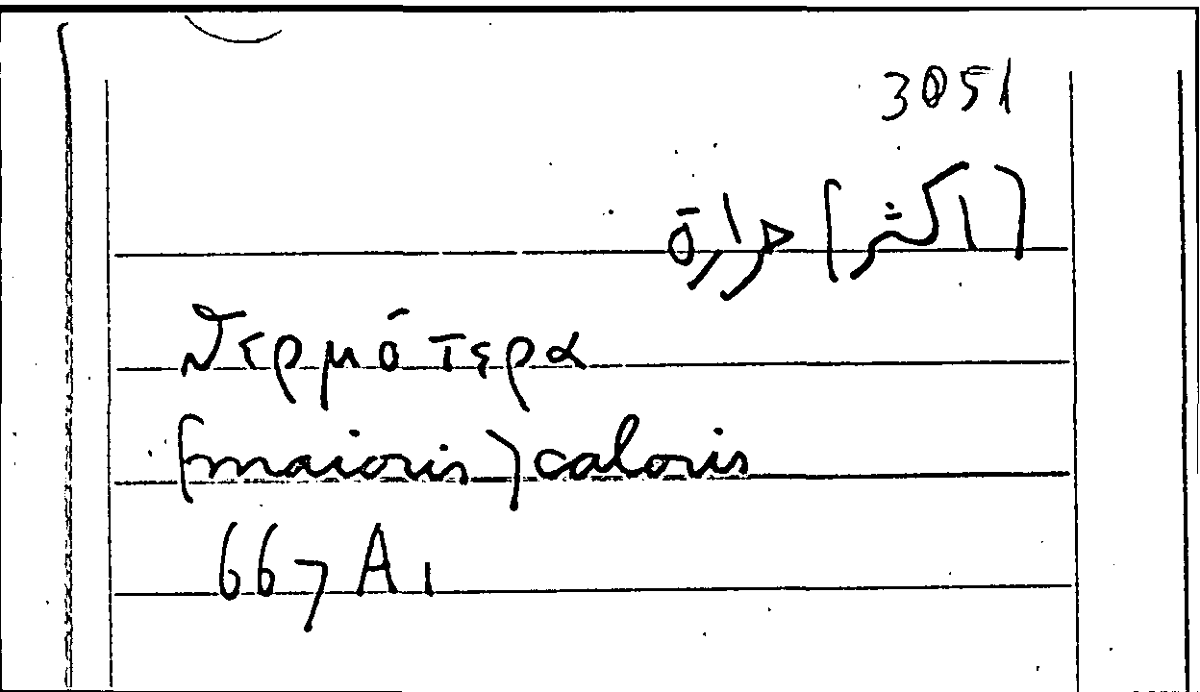 3051
[اكثر] حرارة
θερμότερα
(maioris) caloris
667 A 1